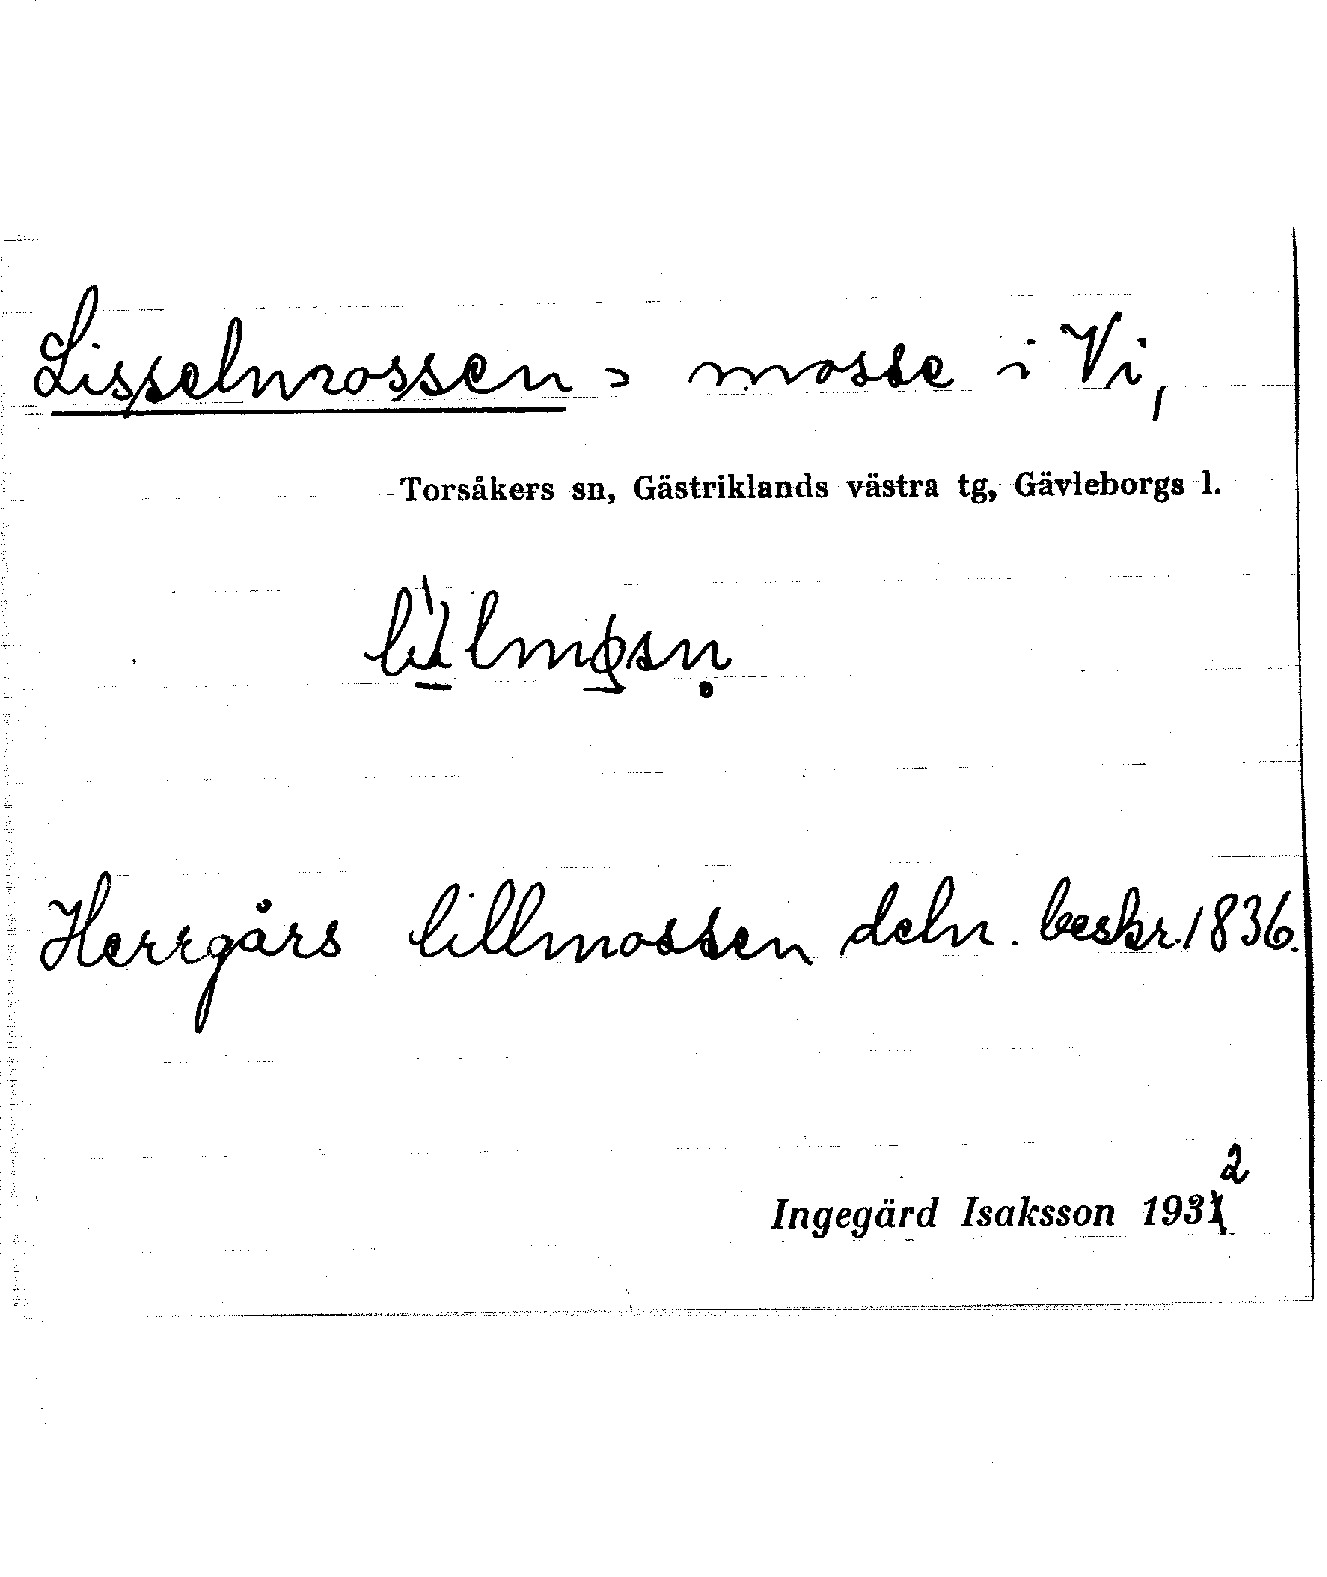 Lisselmossen > mosse i Vi,
Torsåkers sn, Gästriklands västra tg, Gävleborgs l.
Herrgårs lillmossen deln. beskr. 1836.
2
Ingegärd Isaksson 1931